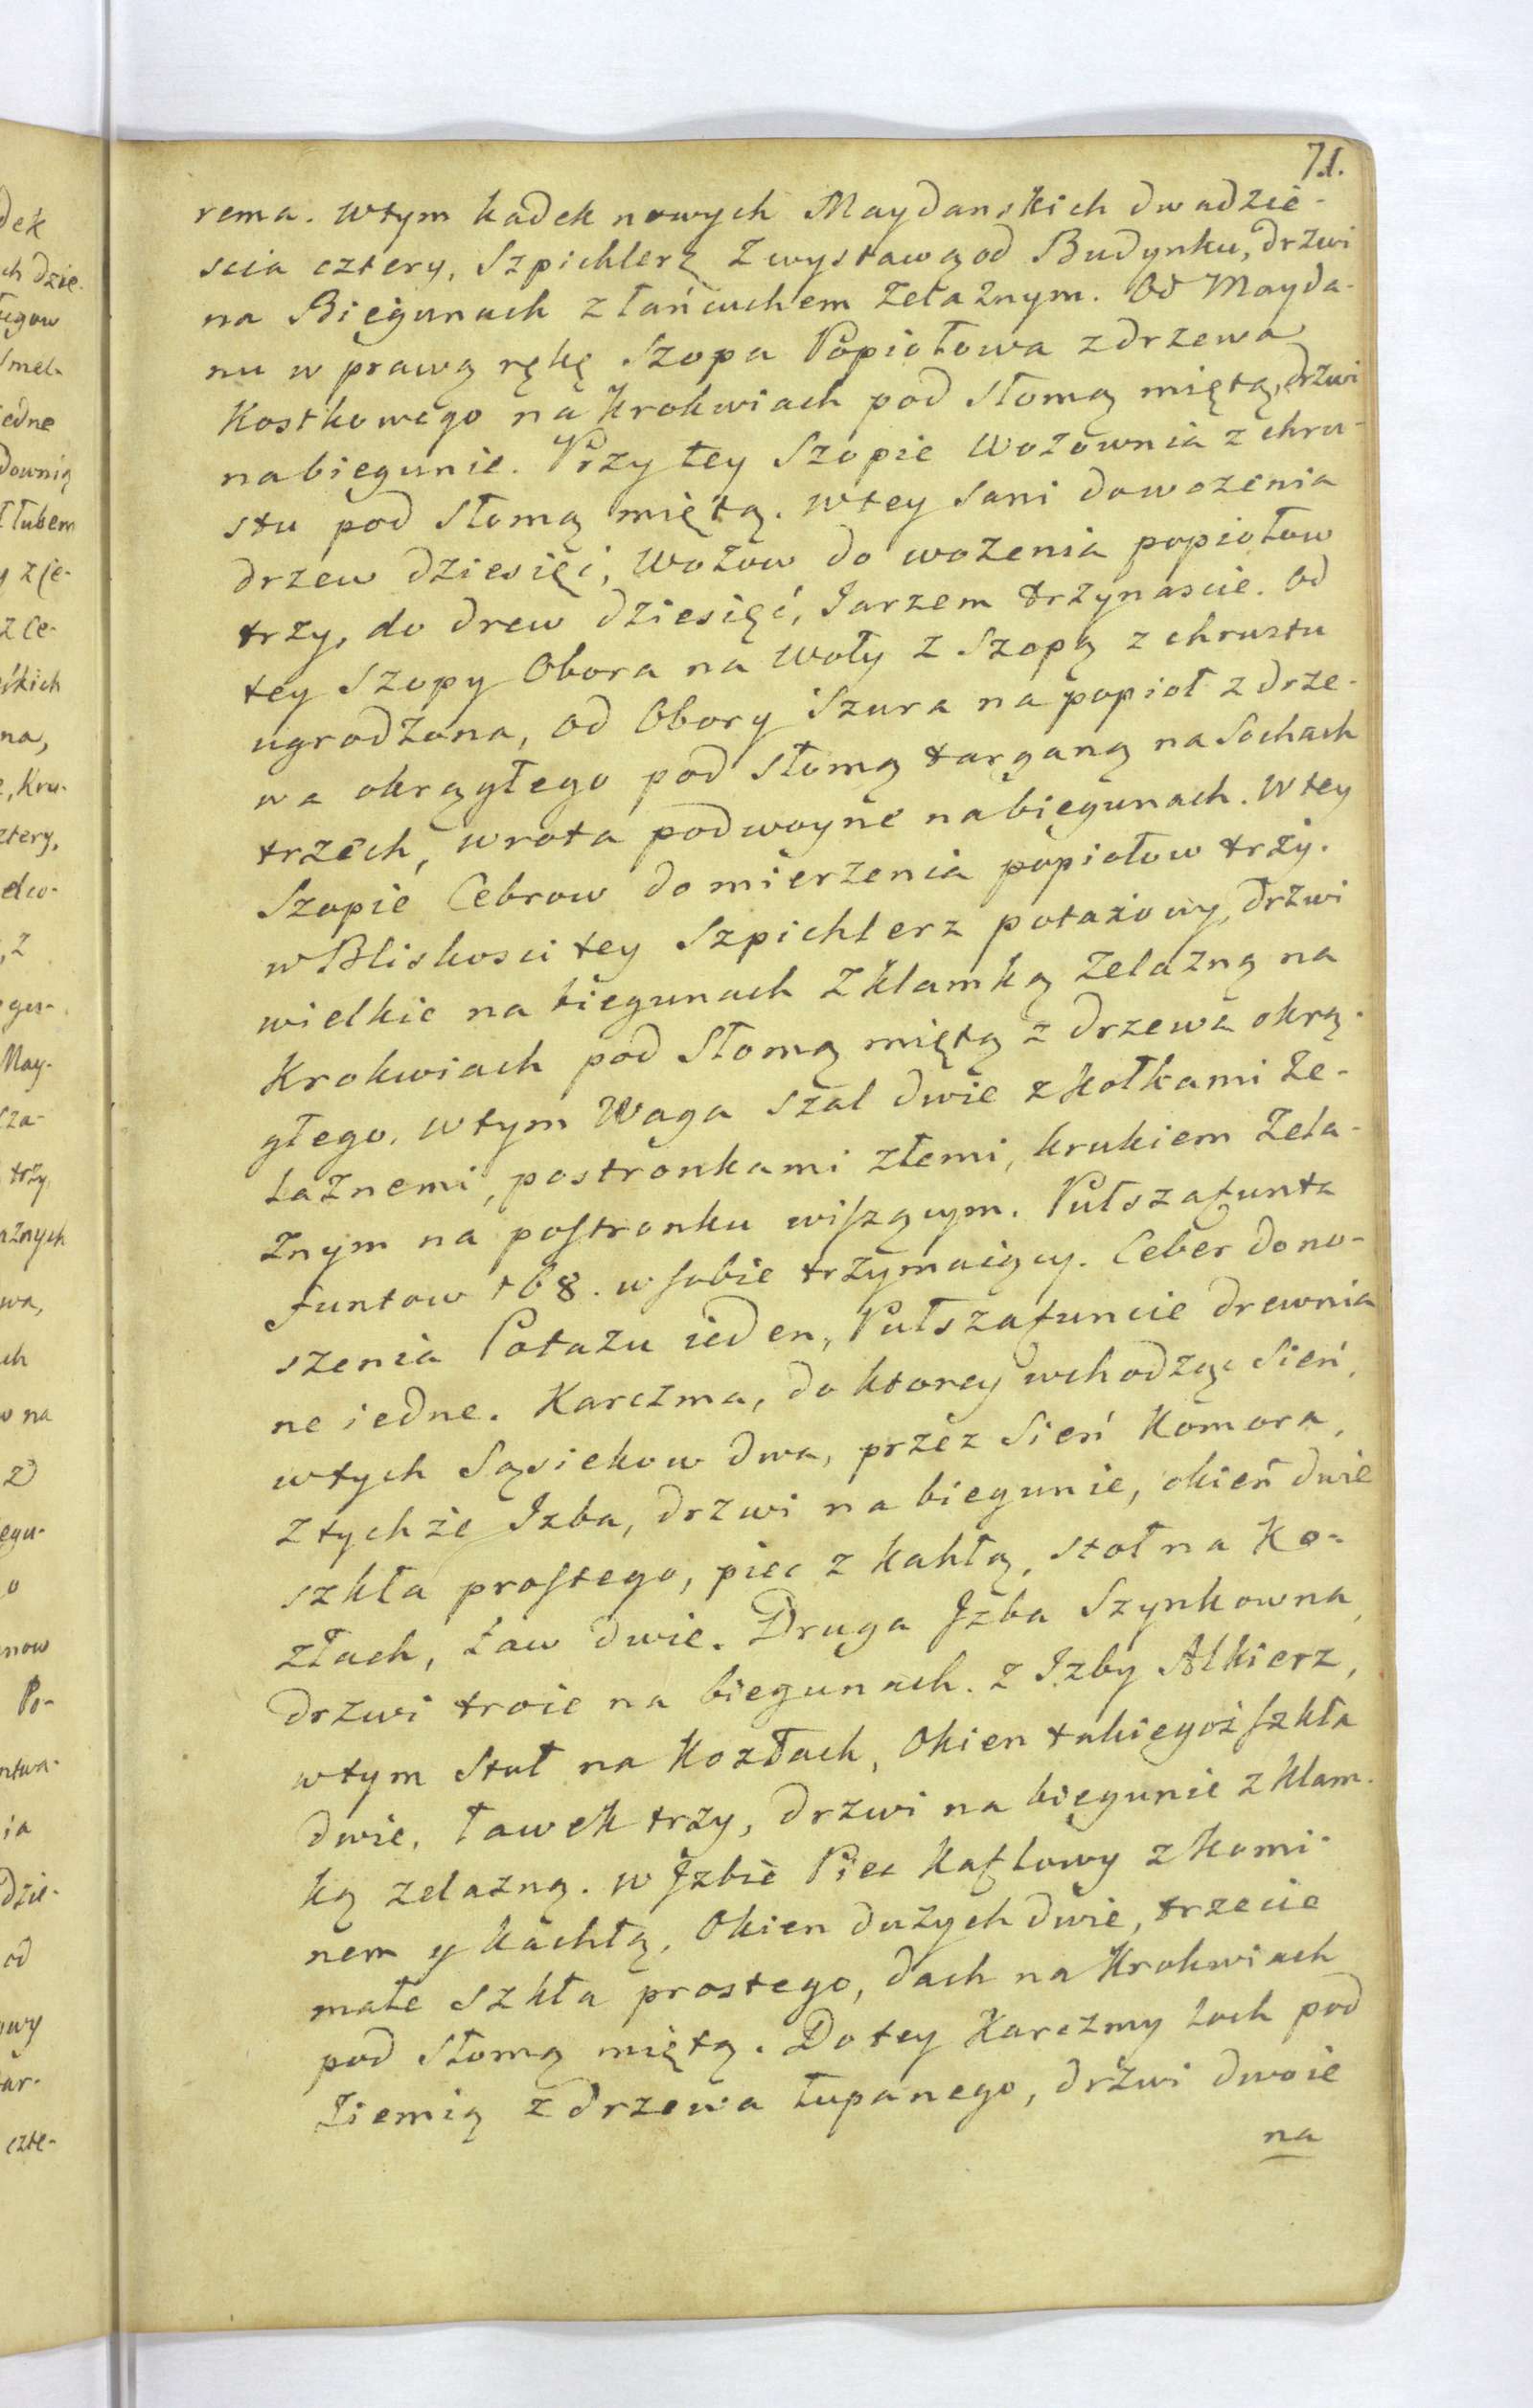 71.
rema. wtym kadek nowych Maydanskich dwadzie-
scia cztery, Szpichlerz z wystawą od Budynku, drzwi
na Biegunach z łańcuchem żelaznym. Od Mayda-
nu w prawą rękę Szopa Popiołowa z drzewa
Kostkowego na Krokwiach pod słomą miętą, drzwi
na biegunie. Przy tey Szopie Wozownia z chru-
stu pod słomą miętą. wtey sani dowozenia
drzew dziesięć, Wozow do wozenia popiołow
trzy, do drew dziesięć, Jarzem trzynascie. Od
tey Szopy Obora na Woły z Szopą z chrustu
ugrodzona, od Obory Szura na popioł z drze-
wa okrągłego pod słomą targaną na Sochach
trzech, wrota podwoyne na biegunach. W tey
Szopie Cebrow do mierzenia popiołow trzy.
w Bliskosci tey Szpichlerz potażowy, drzwi
wielkie na biegunach z klamką żelazną na
Krokwiach pod Słomą miętą z drzewa okrą-
głego, wtym Waga szal dwie z kołkami że-
laznemi, postronkami złemi, krukiem żela-
znym na postronku wiszącym. Pułszafunta
funtow 168. w sobie trzymaiący. Ceber do no-
szenia Potazu ieden, Pułszafuncie drewnia
ne iedne. Karczma, do ktorey wchodząc Sień,
wtych Sąsiekow dwa, przez Sień Komora,
z tychże Izba, drzwi na biegunie, okień dwie
szkła prostego, piec z kahlą, stoł na Ko-
złach, Ław dwie. Druga Izba Szynkowna,
drzwi troie na biegunach. z Izby Alkierz,
wtym Stuł na Kozłach, Okien takiegoż szkła
dwie, ławek trzy, drzwi na biegunie z klam-
ką żelazną. w Izbie Piec Kaflowy z Komi-
nem y kachlą, Okien dużych dwie, trzecie
małe szkła prostego, dach na Krokwiach
pod słomą miętą. Do tey Karczmy Loch pod
ziemią z drzewa łupanego, drzwi dwoie
na